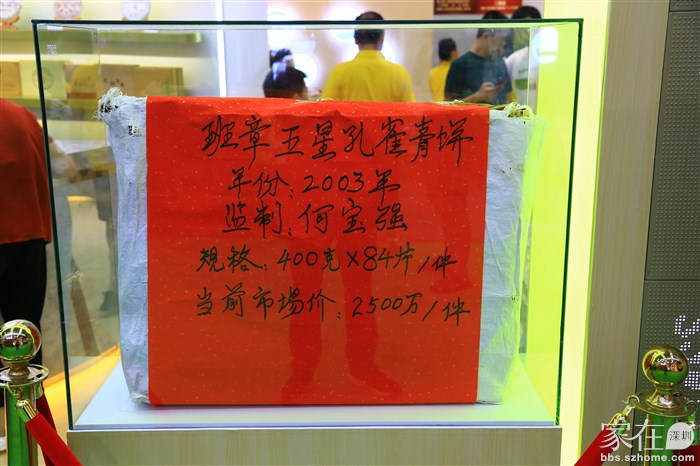 班章五星孔雀青饼
年份：2003年
监制：何宝强
规格：400克×84片/件
当前市场价：2500万/件
家在深圳
bbs.szhome.com